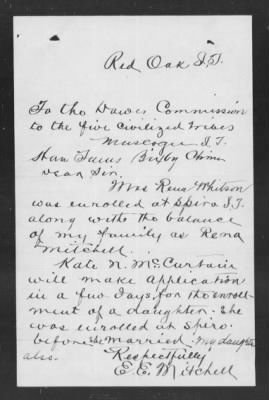 Red Oak I.T.
To the Dawes Commission
to the five civilized tribes
Muscogee I.T.
Hon Tams Bixby Chmn
Dear Sir.
Mrs Rena Whitson
was enrolled at Spiro I.T.
along with the balance
of my family as Rena
Mitchell.
Kate N. McCurtain
will make application
in a few days for the enroll-
ment of a daughter. She
was enrolled at Spiro.
before she married. My daughter
also.
Respectfully
E. E. Mitchell